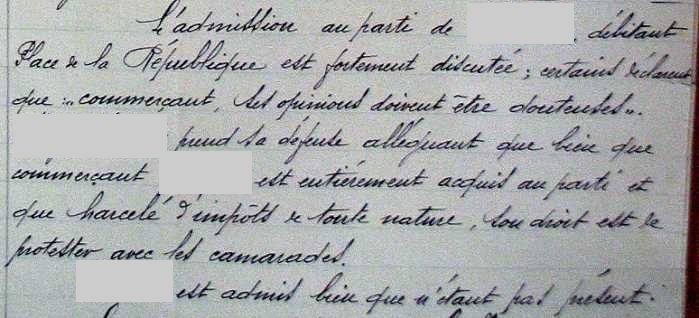 L'admission au parti de , débitant
Place de la République est fortement discutée ; certains déclarent
que : "commerçant, ses opinions doivent être douteuses".
prend sa défense alléguant que bien que
commerçant est entièrement acquis au parti et
que harcelé d'impôts de toute nature, son droit est de
protester avec les camarades.
est admis bien que n'étant pas présent.